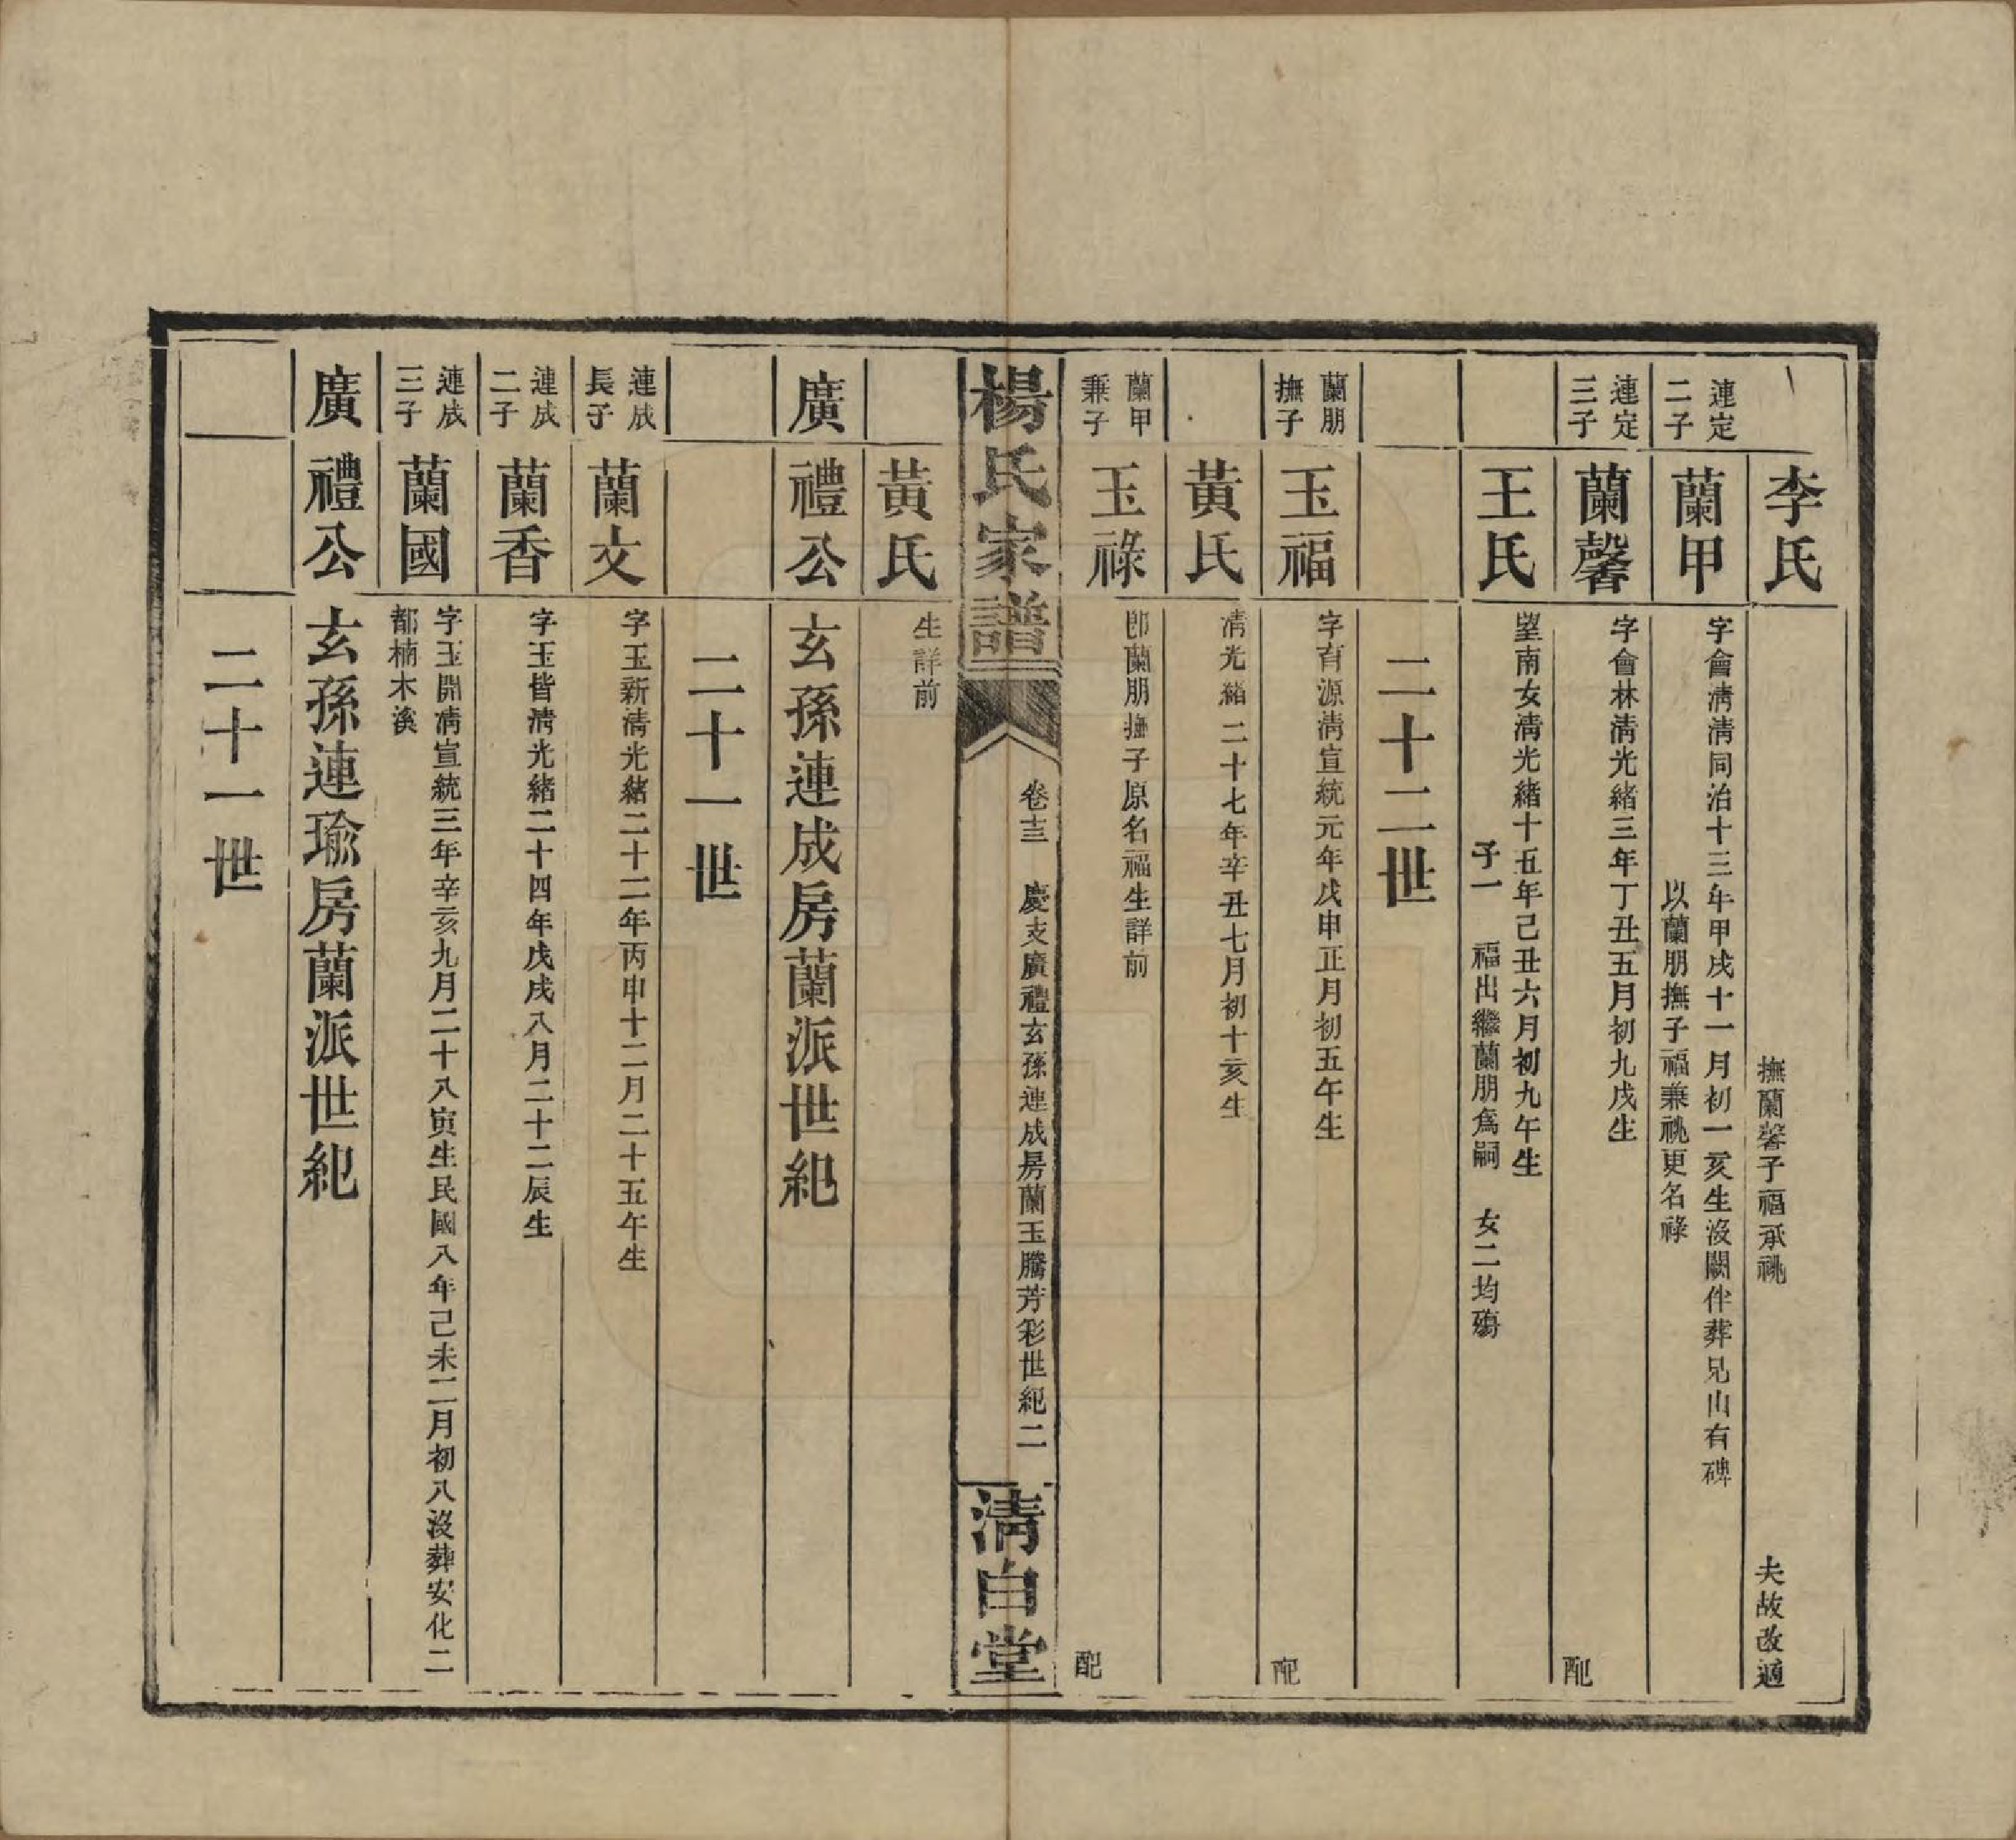 李氏
撫蘭馨子福承祧
夫故改適
連定
二子
蘭甲
字會淸淸同治十三年甲戌十一月初一亥生沒闕伴葬兄山有碑
以蘭朋撫子福兼祧更名祿
連定
三子
蘭馨
字會林淸光緒三年丁丑五月初九戌生
配
王氏
望南女淸光緒十五年己丑六月初九午生
子一 福出繼蘭朋爲嗣 女二均殤
二十二世
蘭朋
撫子
玉福
字育源淸宣統元年戊申正月初五午生
配
黃氏
淸光緒二十七年辛丑七月初十亥生
蘭甲
兼子
玉祿
卽蘭朋撫子原名福生詳前
配
楊氏家譜
卷十三 慶支廣禮玄孫連成房蘭玉騰芳彩世紀二
淸白堂
黃氏
生詳前
廣禮公玄孫連成房蘭派世紀
二十一世
連成
長子
蘭文
字玉新淸光緒二十二年丙申十二月二十五午生
連成
二子
蘭香
字玉皆淸光緒二十四年戊戌八月二十二辰生
連成
三子
蘭國
字玉開淸宣統三年辛亥九月二十八寅生民國八年己未二月初八沒葬安化二
都楠木溪
廣禮公玄孫連瑜房蘭派世紀
二十一世